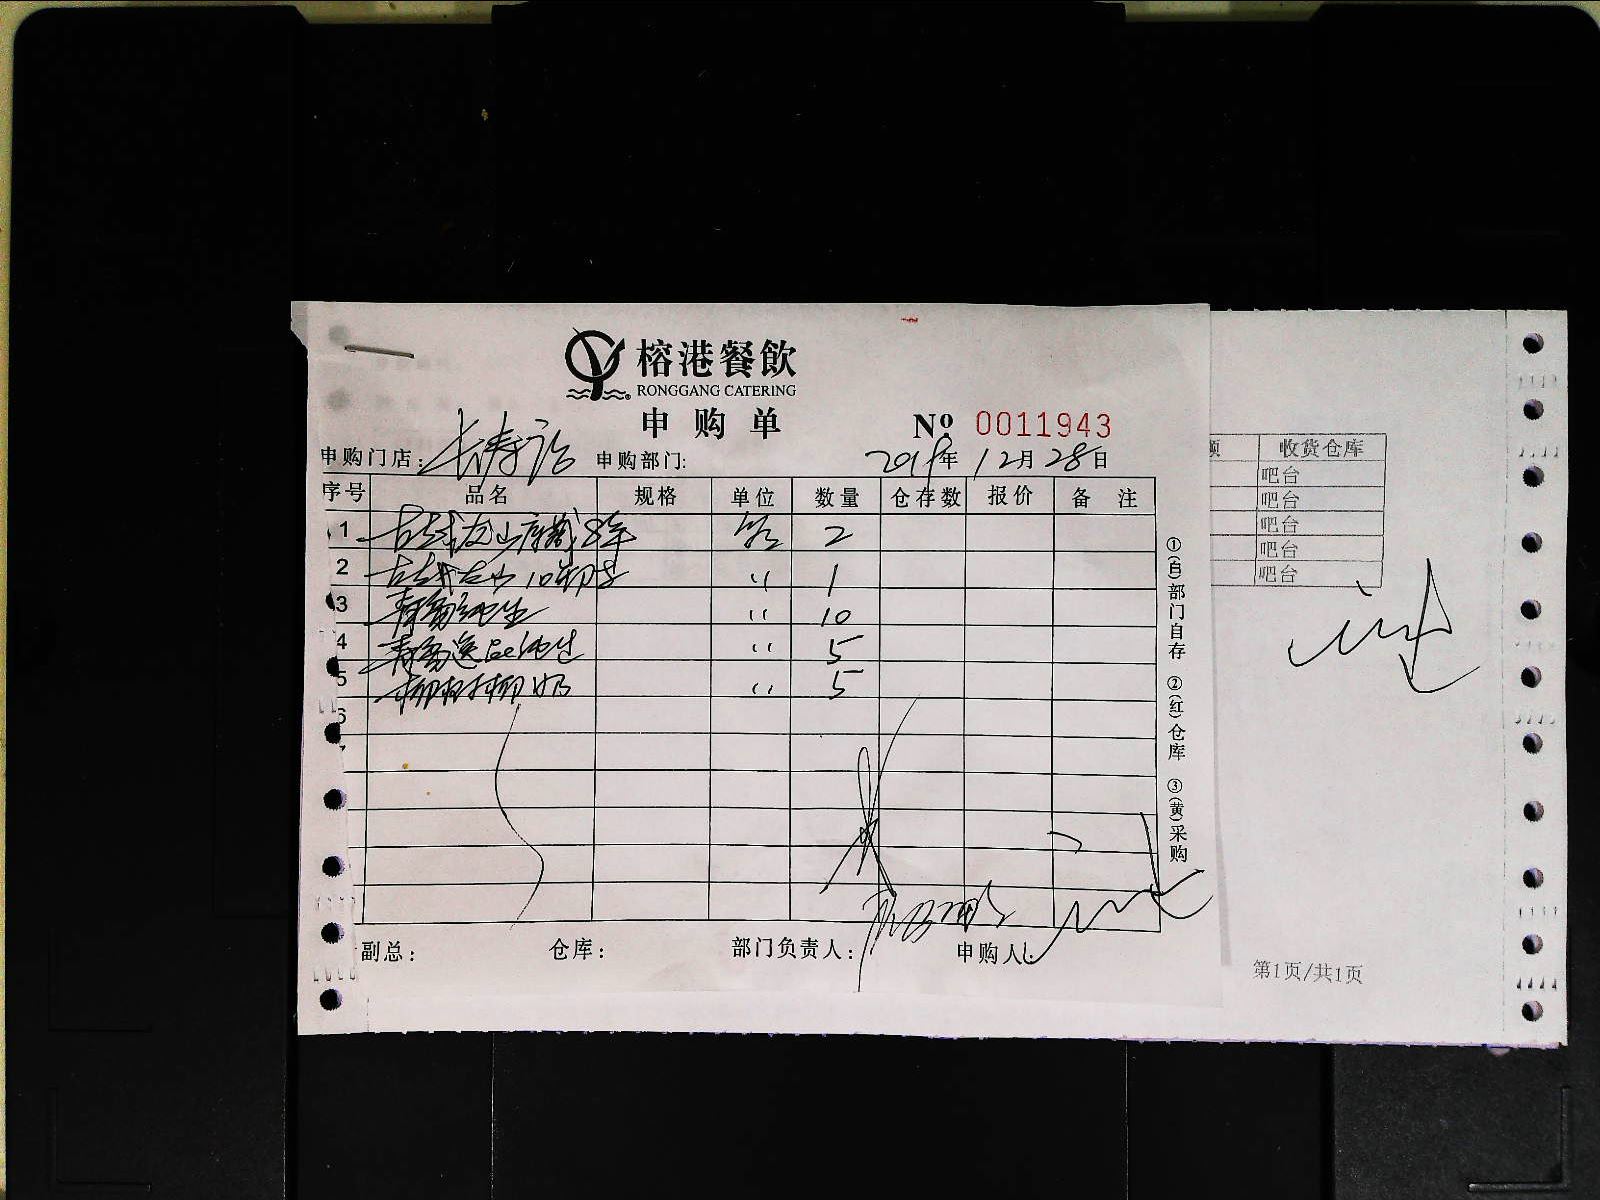 榕港餐飲
RONGGANG CATERING
申购单 Nº 0011943
申购门店: 长寿路 申购部门: 2019年12月28日
序号 品名 规格 单位 数量 仓存数 报价 备注
1 古越龙山库藏8年 2
2 古越龙山10年 〃 1
3 青岛纯生 〃 10
4 青岛逸品纯生 〃 5
5 椰树椰奶 〃 5
6
①(白)部门自存 ②(红)仓库 ③(黄)采购
副总: 仓库: 部门负责人: 申购人:
额 收货仓库
吧台
吧台
吧台
吧台
吧台
第1页/共1页